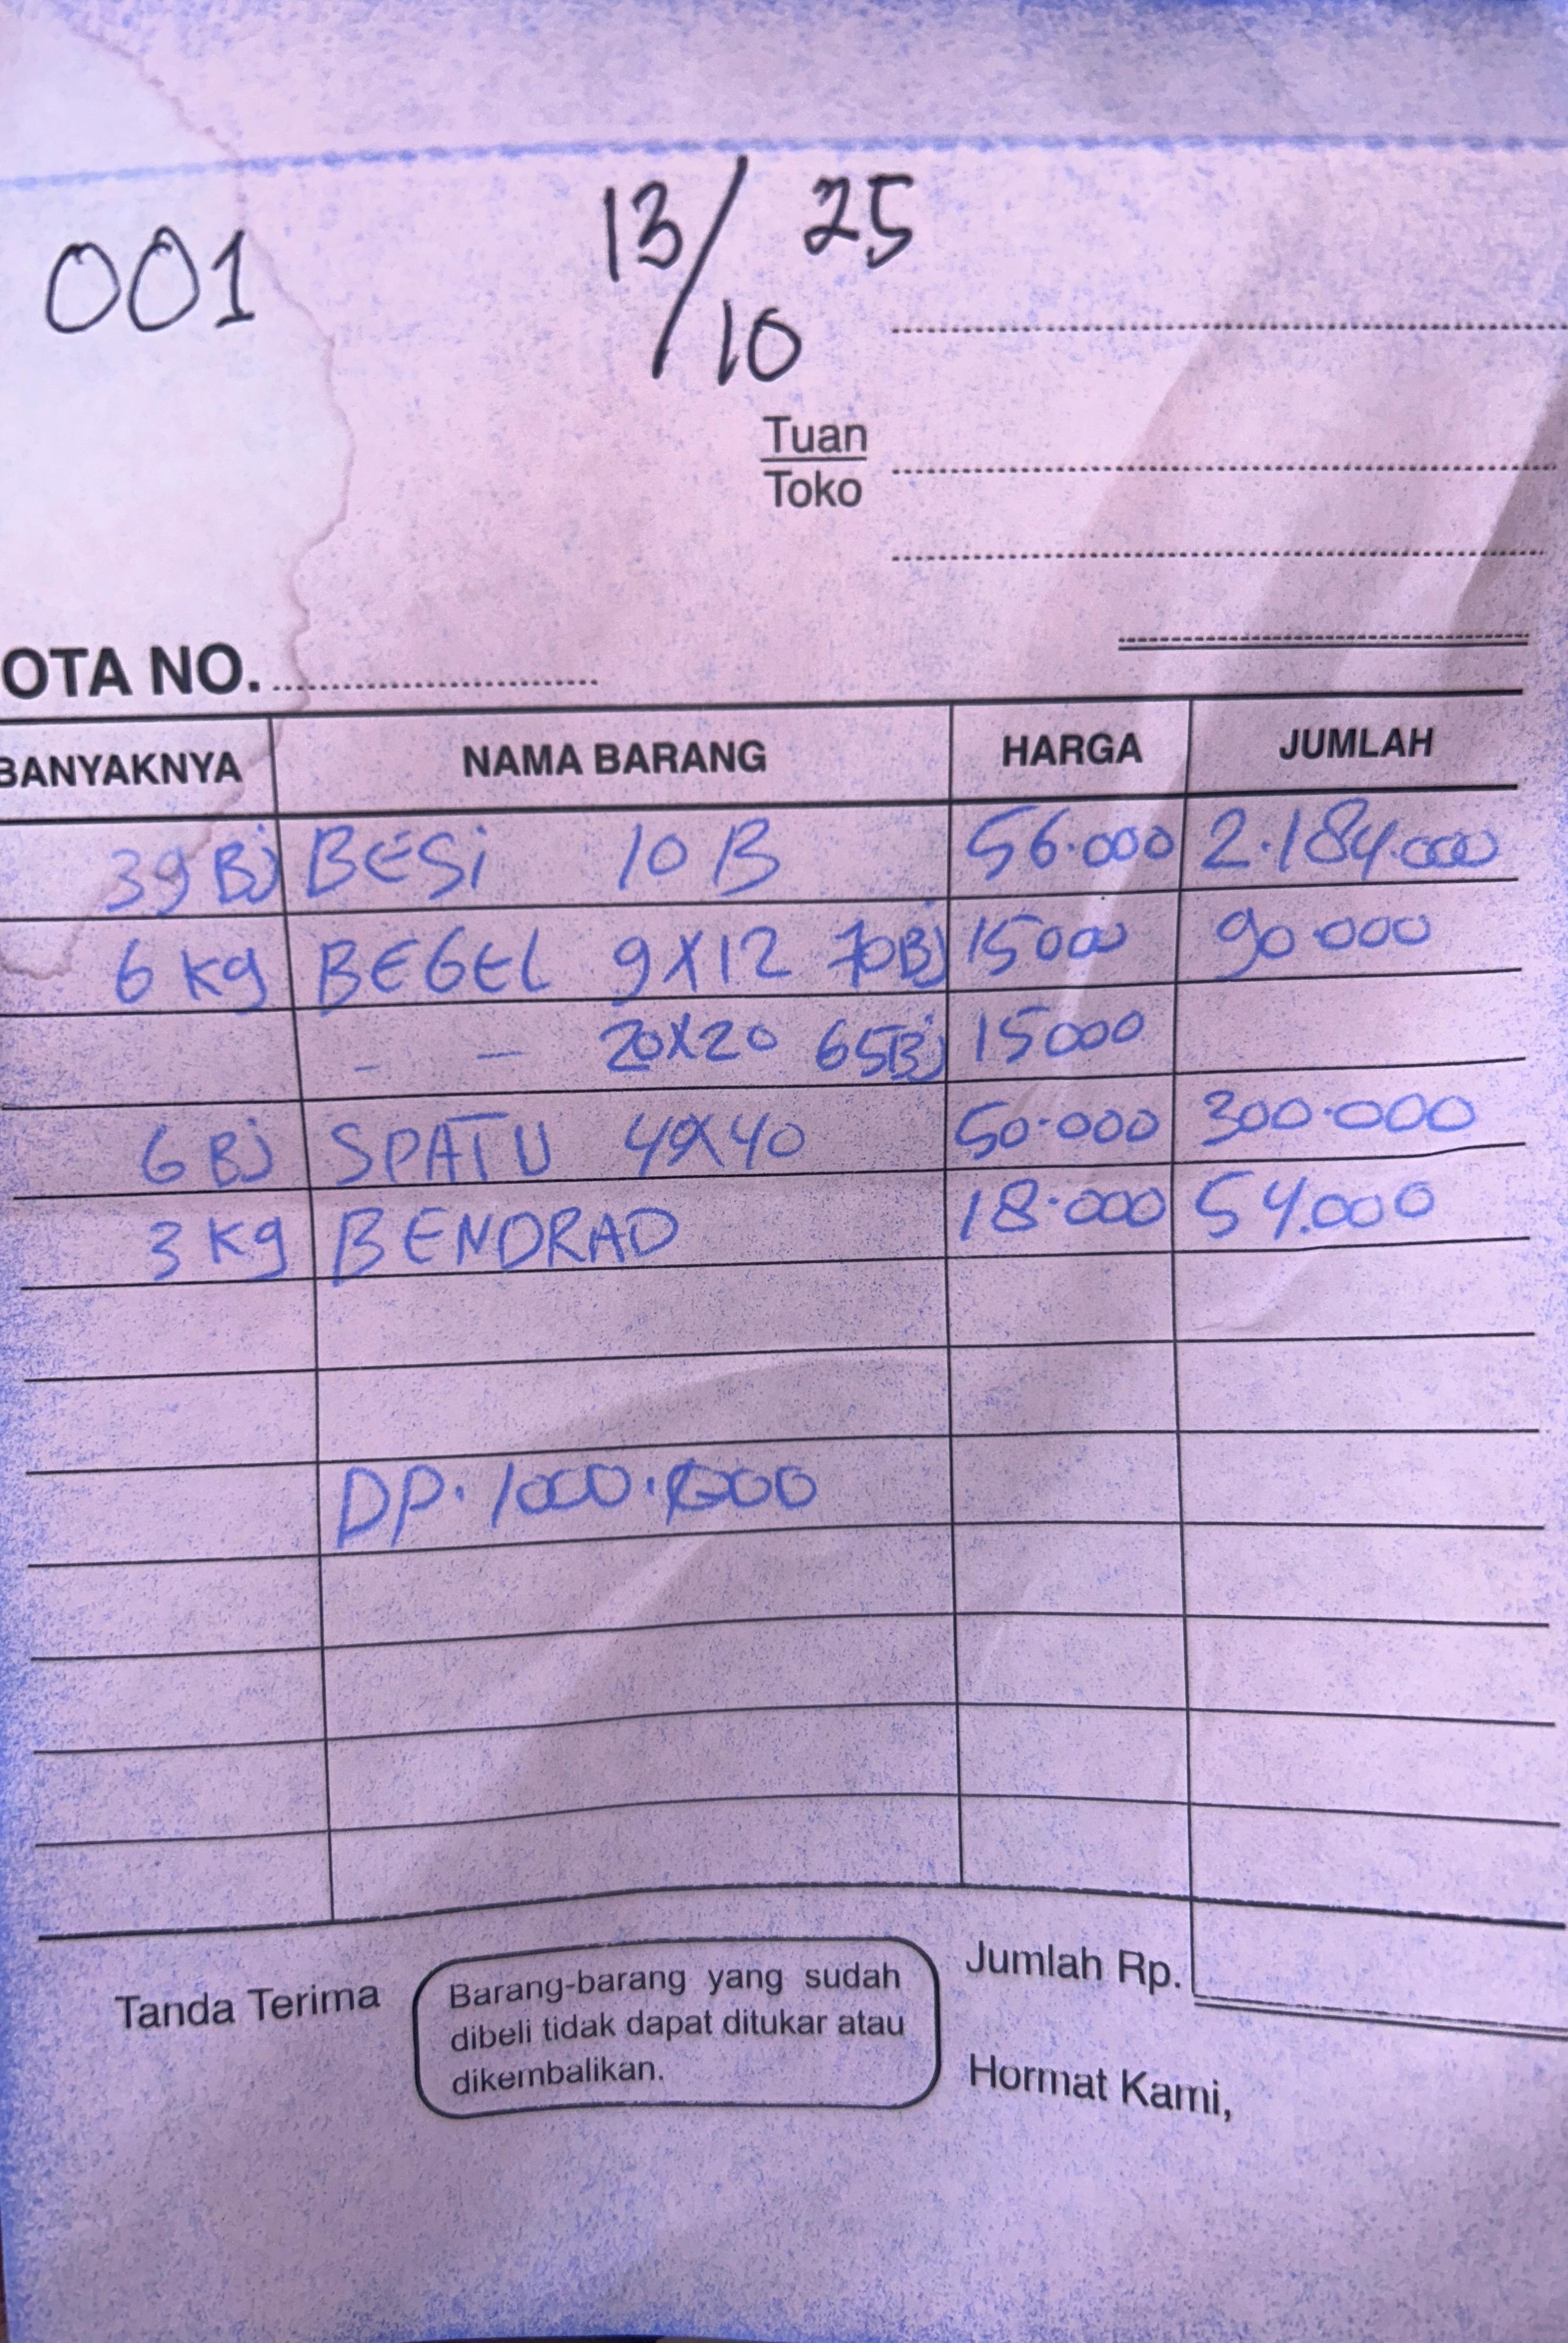 001 13/10 25
Tuan
Toko
OTA NO.
BANYAKNYA NAMA BARANG HARGA JUMLAH
39 Bj BESi 10 B 56.000 2.184.000
6 kg BEGEL 9X12 70Bj 15000 90.000
- - 20X20 65Bj 15000
6 Bj SPATU 40X40 50.000 300.000
3 kg BENDRAD 18.000 54.000
DP. 1000.000
Tanda Terima
Barang-barang yang sudah
dibeli tidak dapat ditukar atau
dikembalikan.
Jumlah Rp.
Hormat Kami,